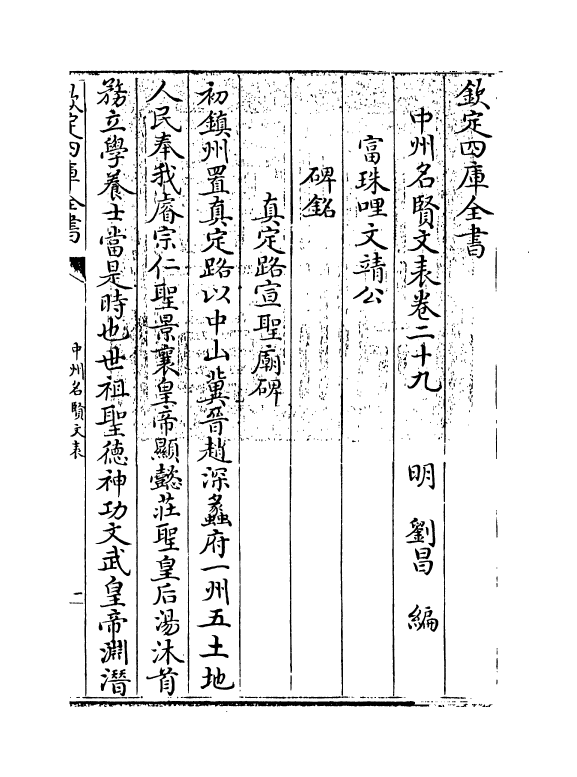 欽定四庫全書
中州名賢文表卷二十九
明 劉昌 編
富珠哩文靖公
碑銘
真定路宣聖廟碑
初鎮州置真定路以中山冀晉趙深蠡府一州五土地
人民奉我睿宗仁聖景襄皇帝顯懿莊聖皇后湯沐首
務立學養士當是時也世祖聖德神功文武皇帝淵潛
欽定四庫全書
中州名賢文表